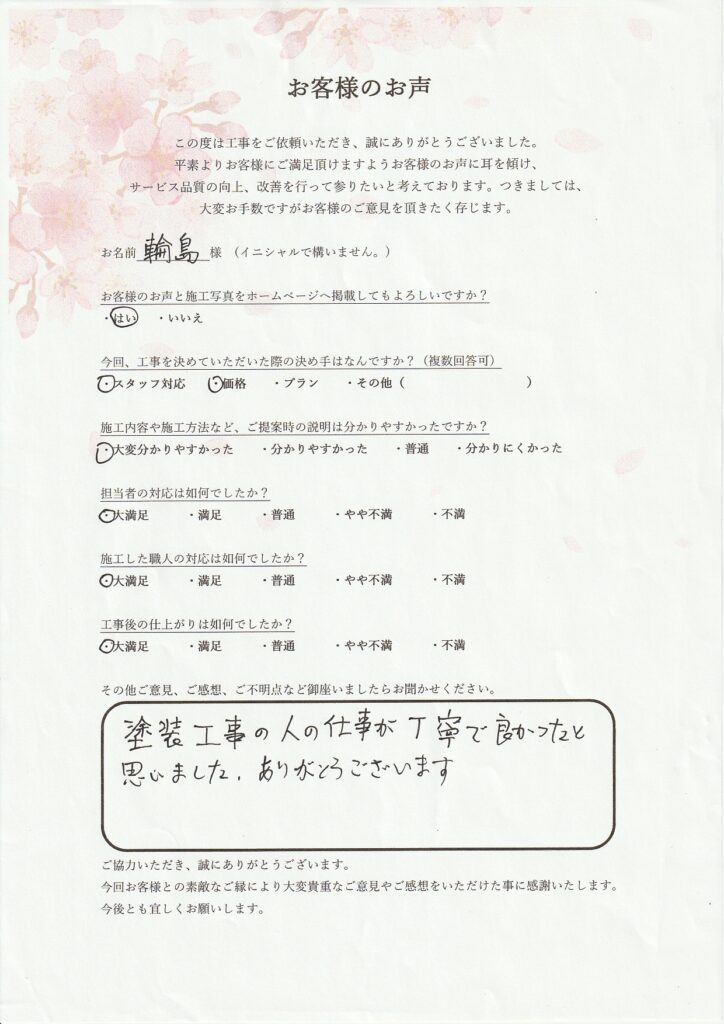 お客様のお声
この度は工事をご依頼いただき、誠にありがとうございました。
平素よりお客様にご満足頂けますようお客様のお声に耳を傾け、
サービス品質の向上、改善を行って参りたいと考えております。つきましては、
大変お手数ですがお客様のご意見を頂きたく存じます。
お名前 輪島 様 （イニシャルで構いません。）
お客様のお声と施工写真をホームページへ掲載してもよろしいですか？
・はい ・いいえ
今回、工事を決めていただいた際の決め手はなんですか？（複数回答可）
・スタッフ対応 ・価格 ・プラン ・その他（ ）
施工内容や施工方法など、ご提案時の説明は分かりやすかったですか？
・大変分かりやすかった ・分かりやすかった ・普通 ・分かりにくかった
担当者の対応は如何でしたか？
・大満足 ・満足 ・普通 ・やや不満 ・不満
施工した職人の対応は如何でしたか？
・大満足 ・満足 ・普通 ・やや不満 ・不満
工事後の仕上がりは如何でしたか？
・大満足 ・満足 ・普通 ・やや不満 ・不満
その他ご意見、ご感想、ご不明点など御座いましたらお聞かせください。
塗装工事の人の仕事が丁寧で良かったと
思いました。ありがとうございます
ご協力いただき、誠にありがとうございます。
今回お客様との素敵なご縁により大変貴重なご意見やご感想をいただけた事に感謝いたします。
今後とも宜しくお願いします。